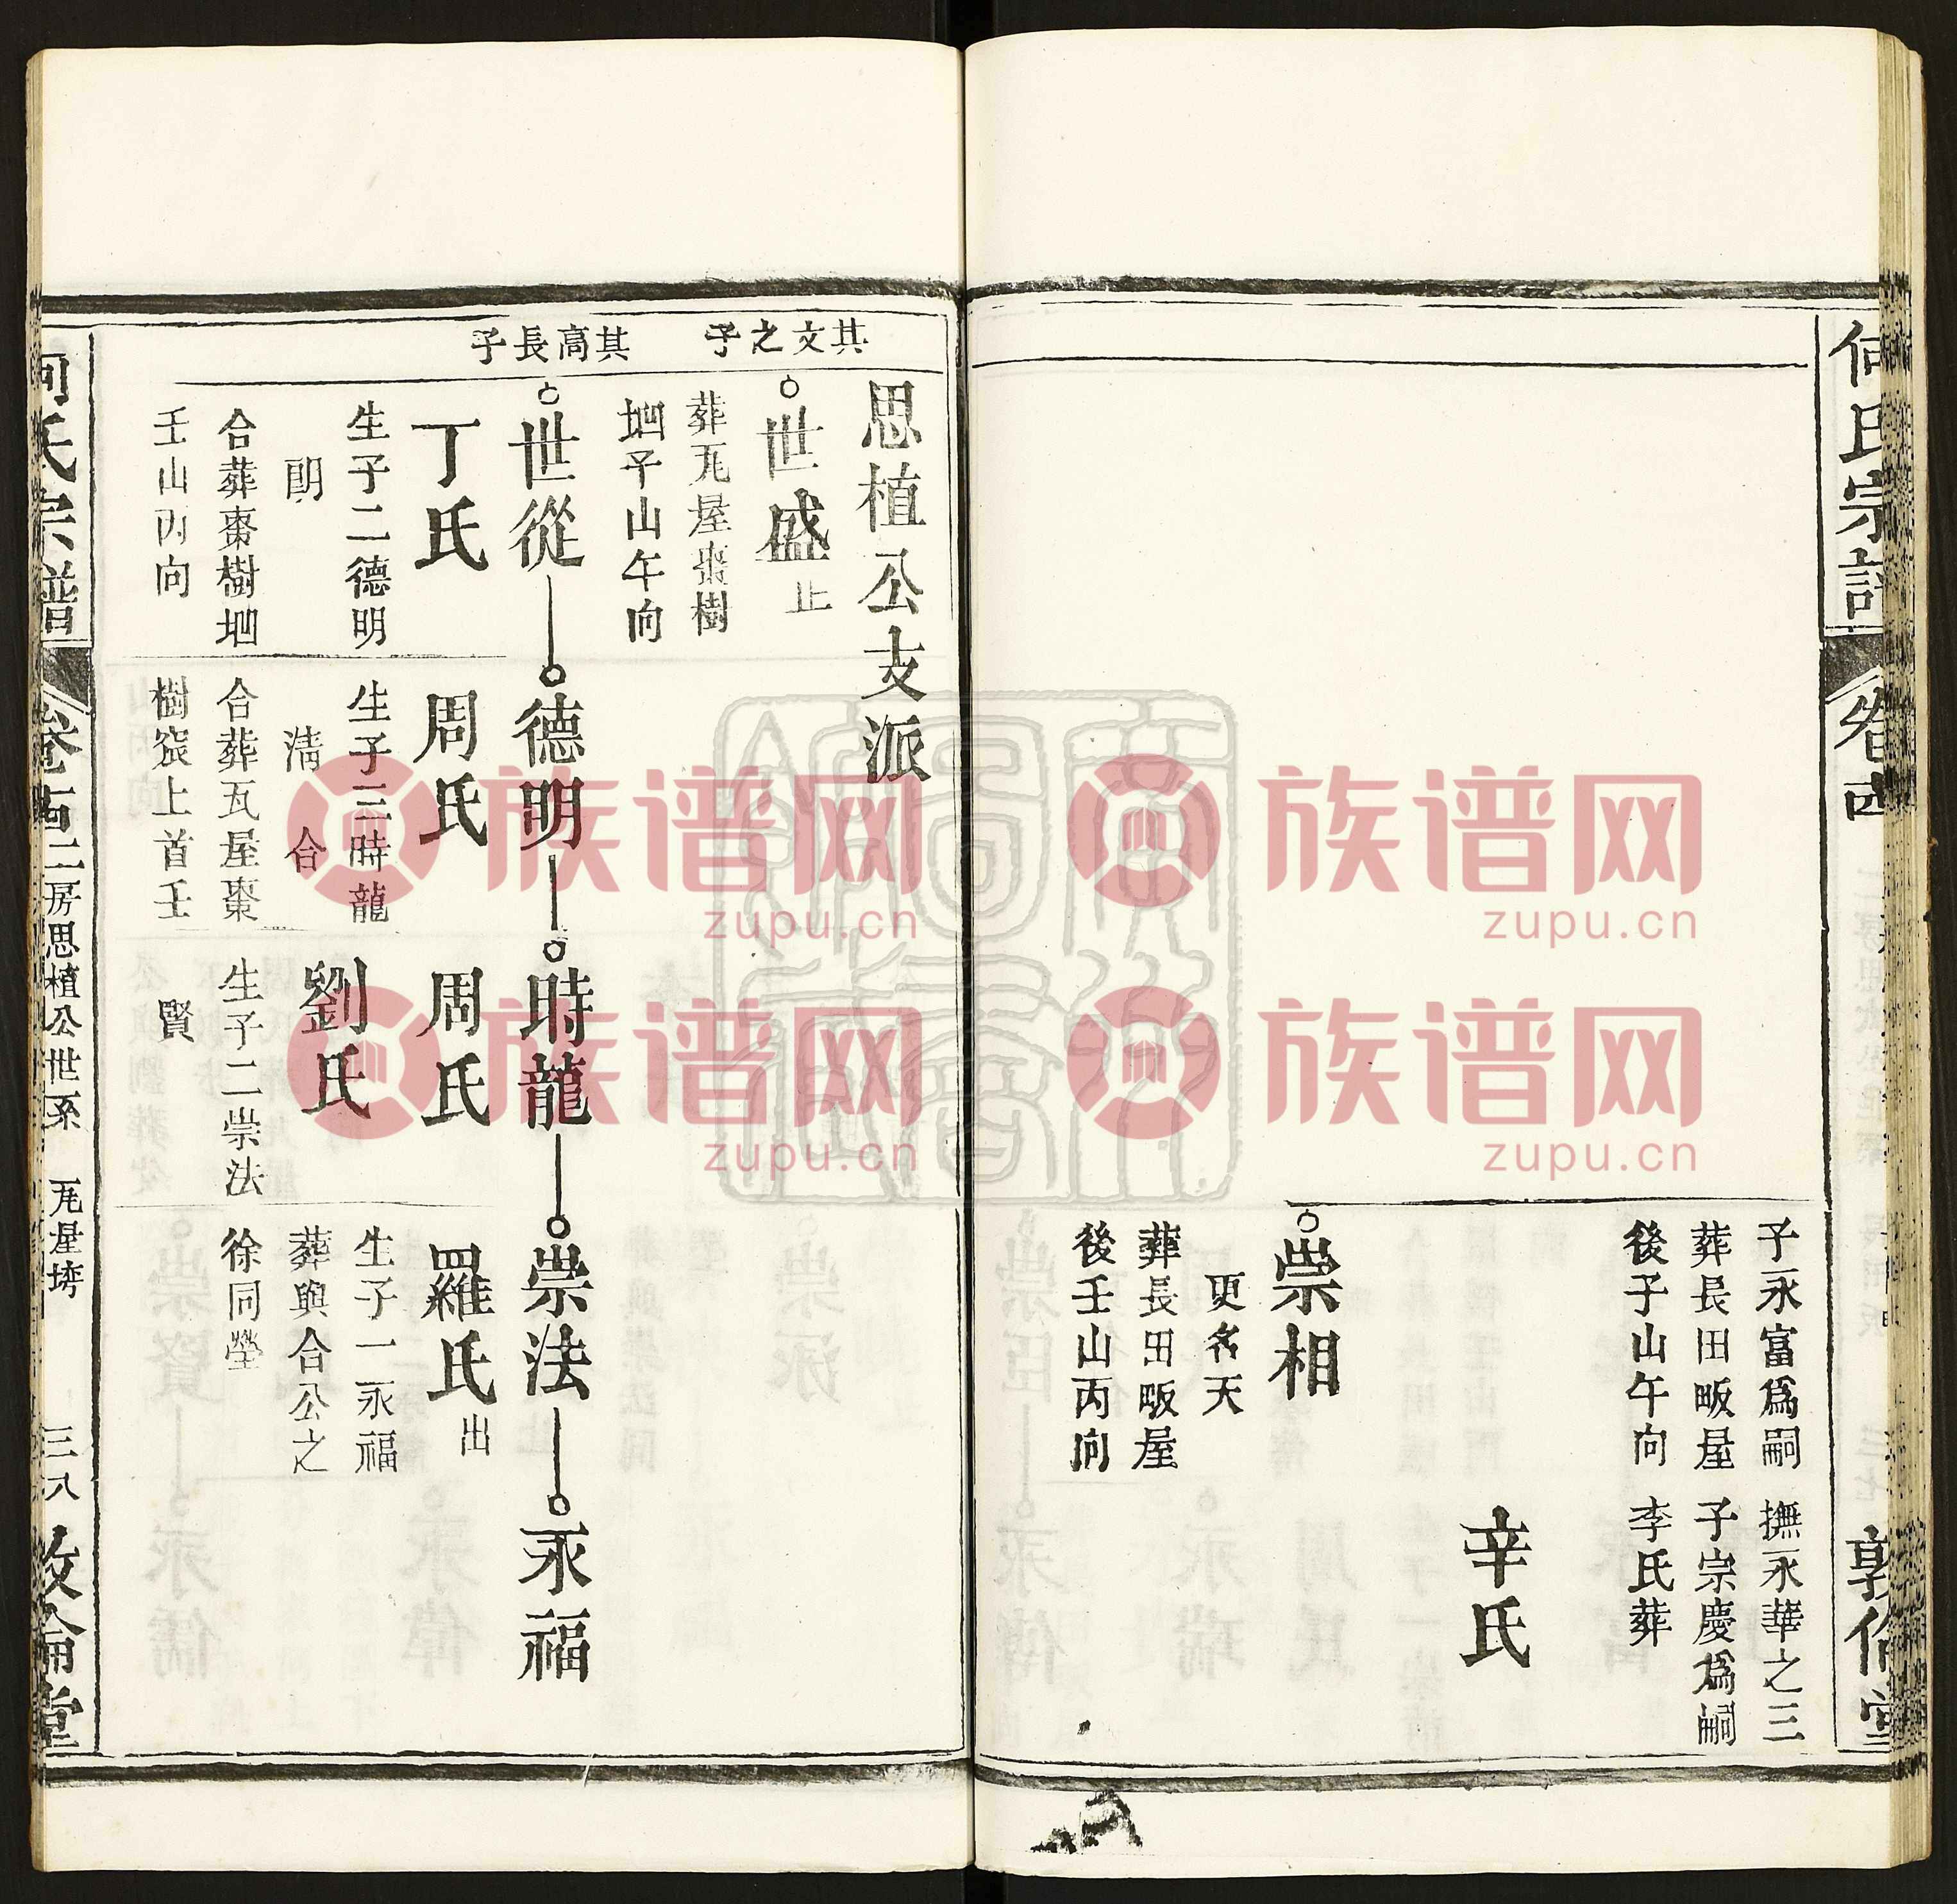 何氏宗譜
敦倫堂
子永富為嗣
葬長田畈屋
後子山午向
撫永華之三
子宗慶為嗣
李氏葬
辛氏
崇相
更名天
葬長田畈屋
後壬山丙向
其文之子
其高長子
思植公支派
世盛止
葬瓦屋棗樹
坳子山午向
世從
丁氏
生子二德明
朗
合葬棗樹坳
壬山丙向
德明
周氏
生子三時龍
清 合
合葬瓦屋棗
樹窊上首壬
時龍
周氏
劉氏
生子二崇法
賢
崇法
羅氏出
生子一永福
葬與合公之
徐同塋
永福
何氏宗譜
卷十四二房思植公世系 瓦屋塆
三八
敦倫堂
族谱网
zupu.cn
族谱网
zupu.cn
族谱网
zupu.cn
族谱网
zupu.cn